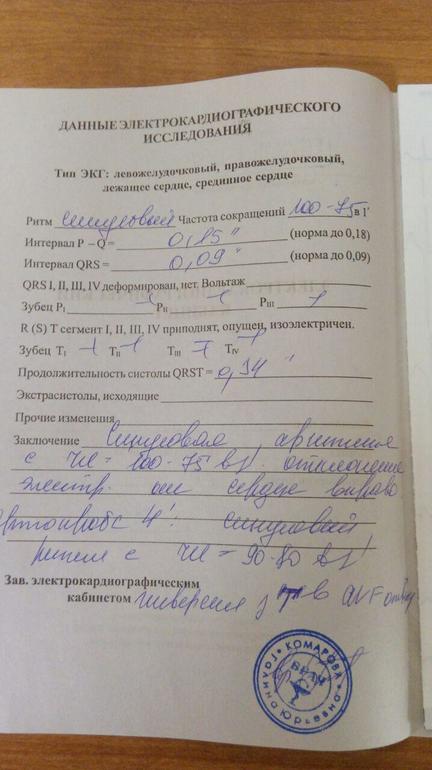 ДАННЫЕ ЭЛЕКТРОКАРДИОГРАФИЧЕСКОГО
ИССЛЕДОВАНИЯ
Тип ЭКГ: левожелудочковый, правожелудочковый,
лежащее сердце, срединное сердце
Ритм синусовый Частота сокращений 100-75 в 1'
Интервал P – Q = 0,15" (норма до 0,18)
Интервал QRS = 0,09" (норма до 0,09)
QRS I, II, III, IV деформирован, нет. Вольтаж
Зубец PI PII PIII
R (S) T сегмент I, II, III, IV приподнят, опущен, изоэлектричен.
Зубец TI TII TIII TIV
Продолжительность систолы QRST = 0,34"
Экстрасистолы, исходящие
Прочие изменения
Заключение Синусовая аритмия
с ЧСС = 100-75 в 1'. отклонение
электр. оси сердца вправо
Ортопроба 4': синусовый
ритм с ЧСС = 90-80 в 1'
Зав. электрокардиографическим
кабинетом инверсия з. T в aVF
КОМАРОВА
Юрьевна
ВРАЧ